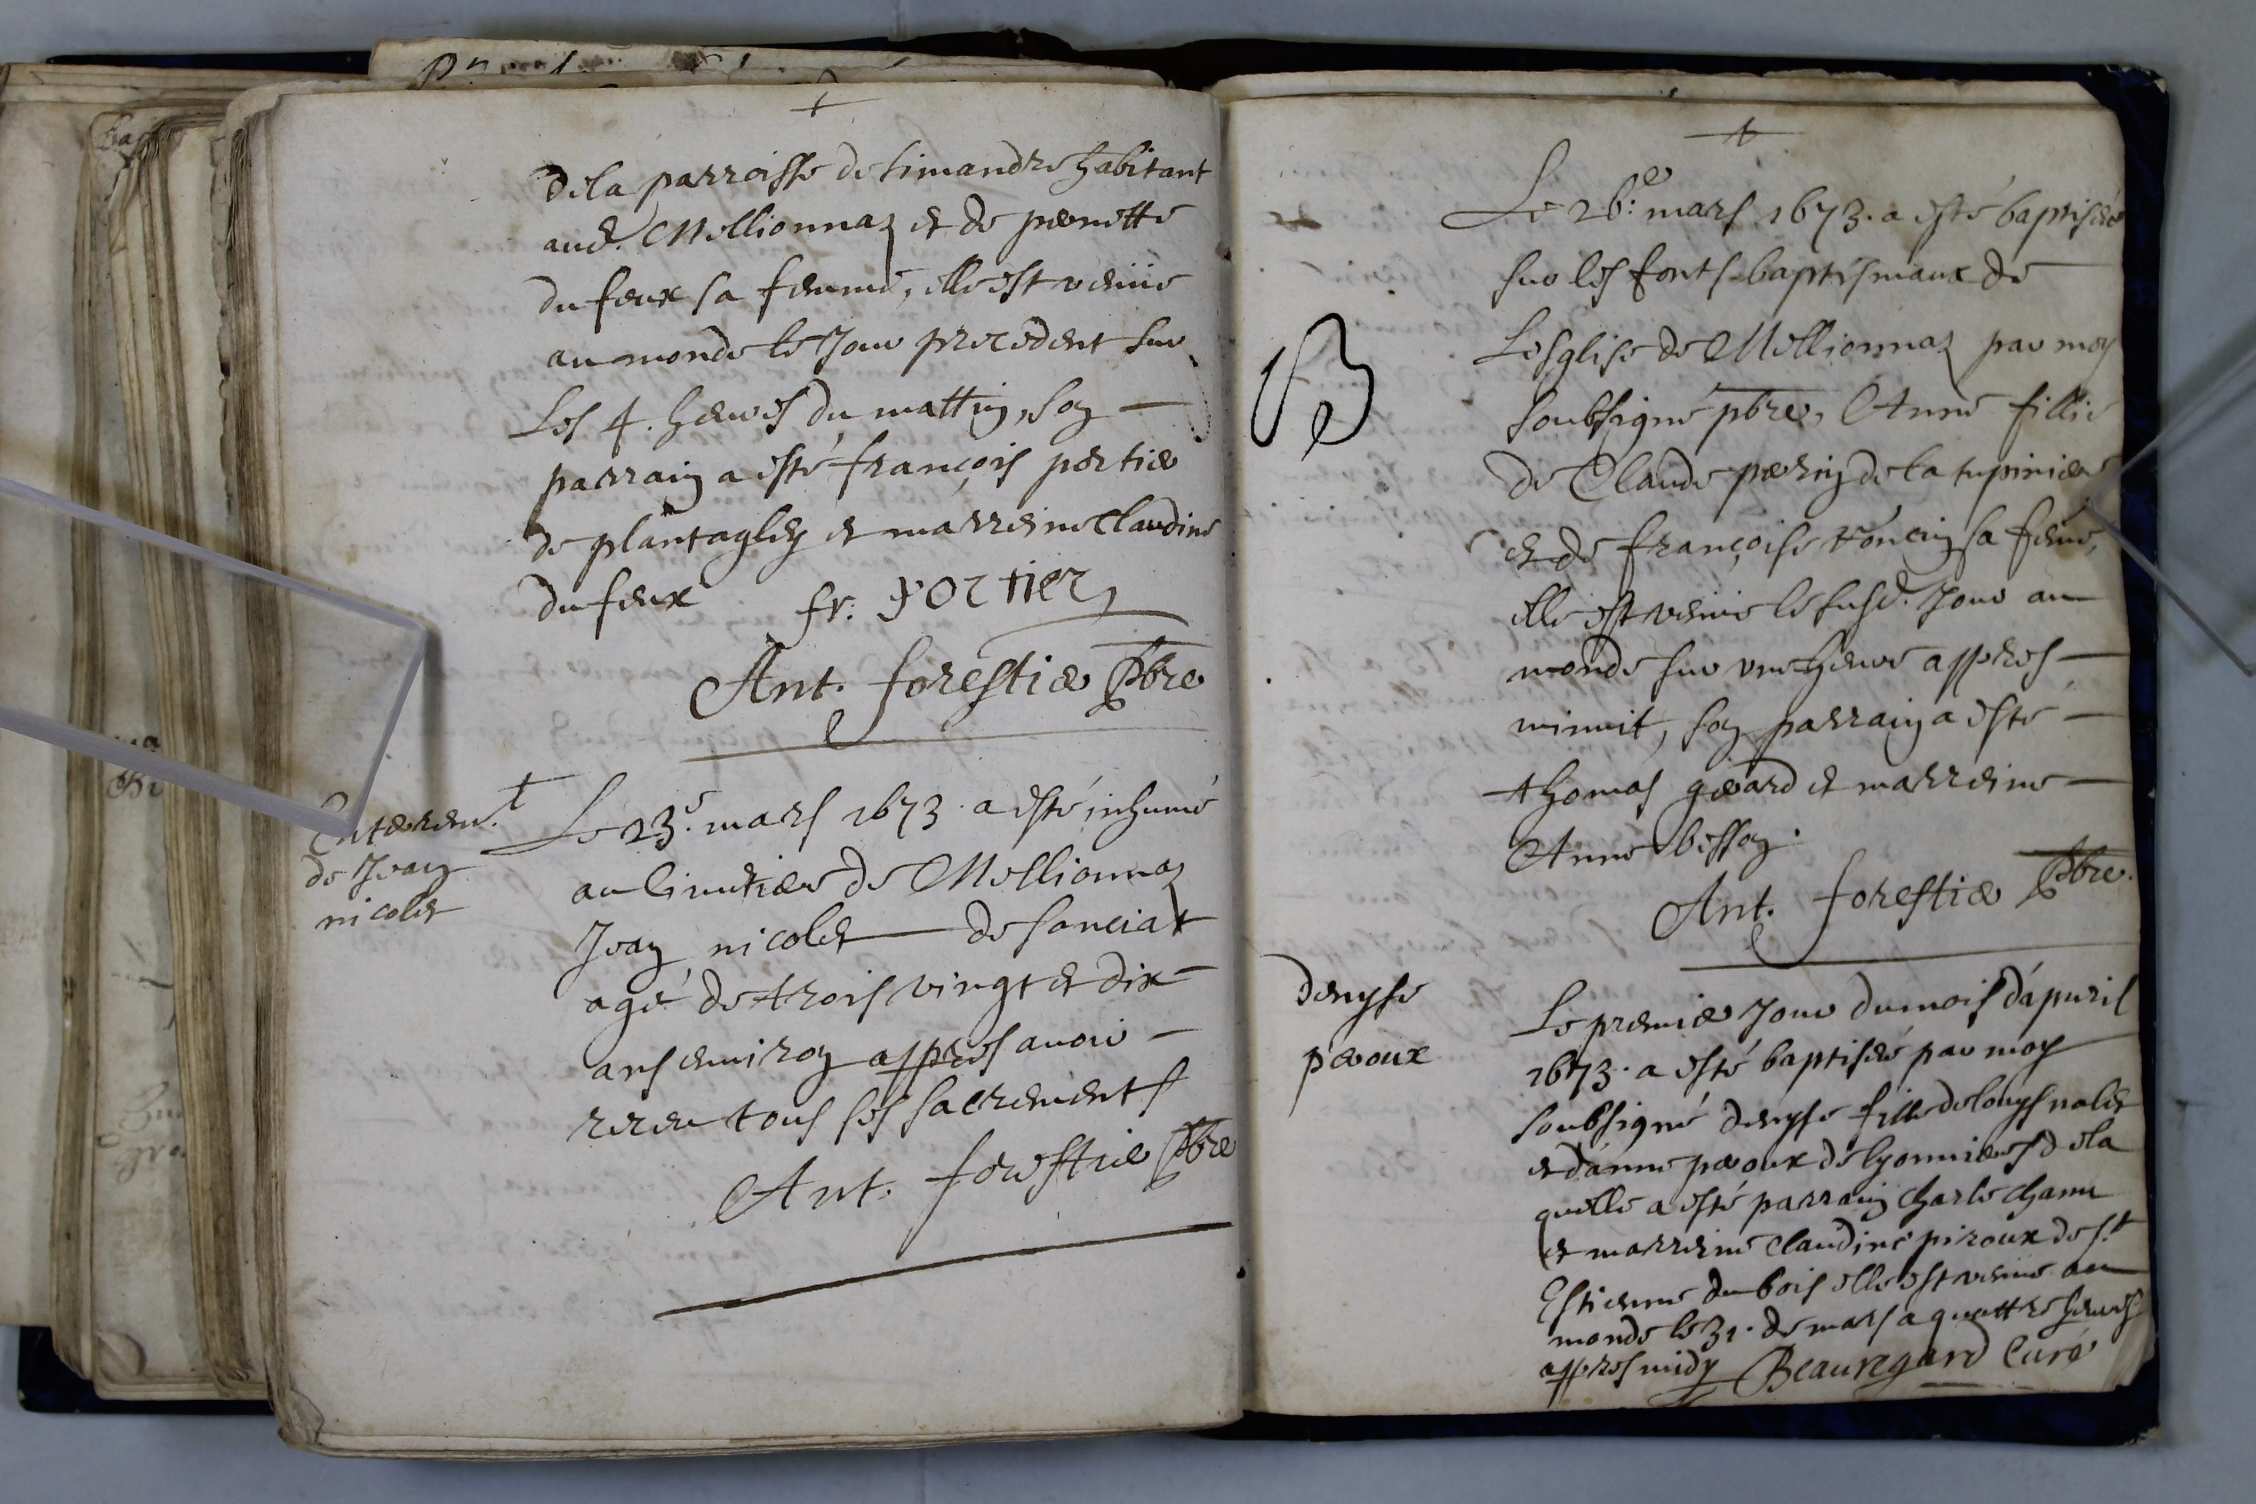 de la parroisse de simandre habitant
aud. Mellionnaz et de pernette
du feux sa femme, elle est venüe
au monde le Jour precedent sur
Les 4. heures du mattin, son
parrain a esté françois portier
de plantagley et marreine Claudine
du feux fr. portier
Ant. forestier pbre
Enterem.t
de Jean
nicolet
Le 23.e mars 1673. a esté inhumé
au Cimetiere de Mellionnaz
Jean nicolet de sanciat
agé de trois vingt et dix
ans environ appres avoir
receu tous ses sacrements
Ant. forestier pbre
Le 26.e mars 1673. a esté baptisée
sur les fonts baptismaux de
Lesglise de Mellionnaz par moy
soubsigné pbre, Anne fillie
de Claude perrin de la tupiniere
et de françoise voncin sa feme,
elle est venüe le susd. Jour au
monde sur une heure appres
minuit, son parrain a esté
thomas girard et marreine
Anne besson.
Ant. forestier pbre.
B
denyse
peroux
Le premier Jour du mois d'apuril
1673. a esté baptisée par moy
soubsigné denyse fille de louys nalet
et d'anne peroux de lyonnieres de la
quelle a esté parrain charle chanu
et marreine claudine piroux de s.t
Estienne du bois elle est venüe au
monde le 31. de mars a quattre heures
appres midy Beauregard Curé